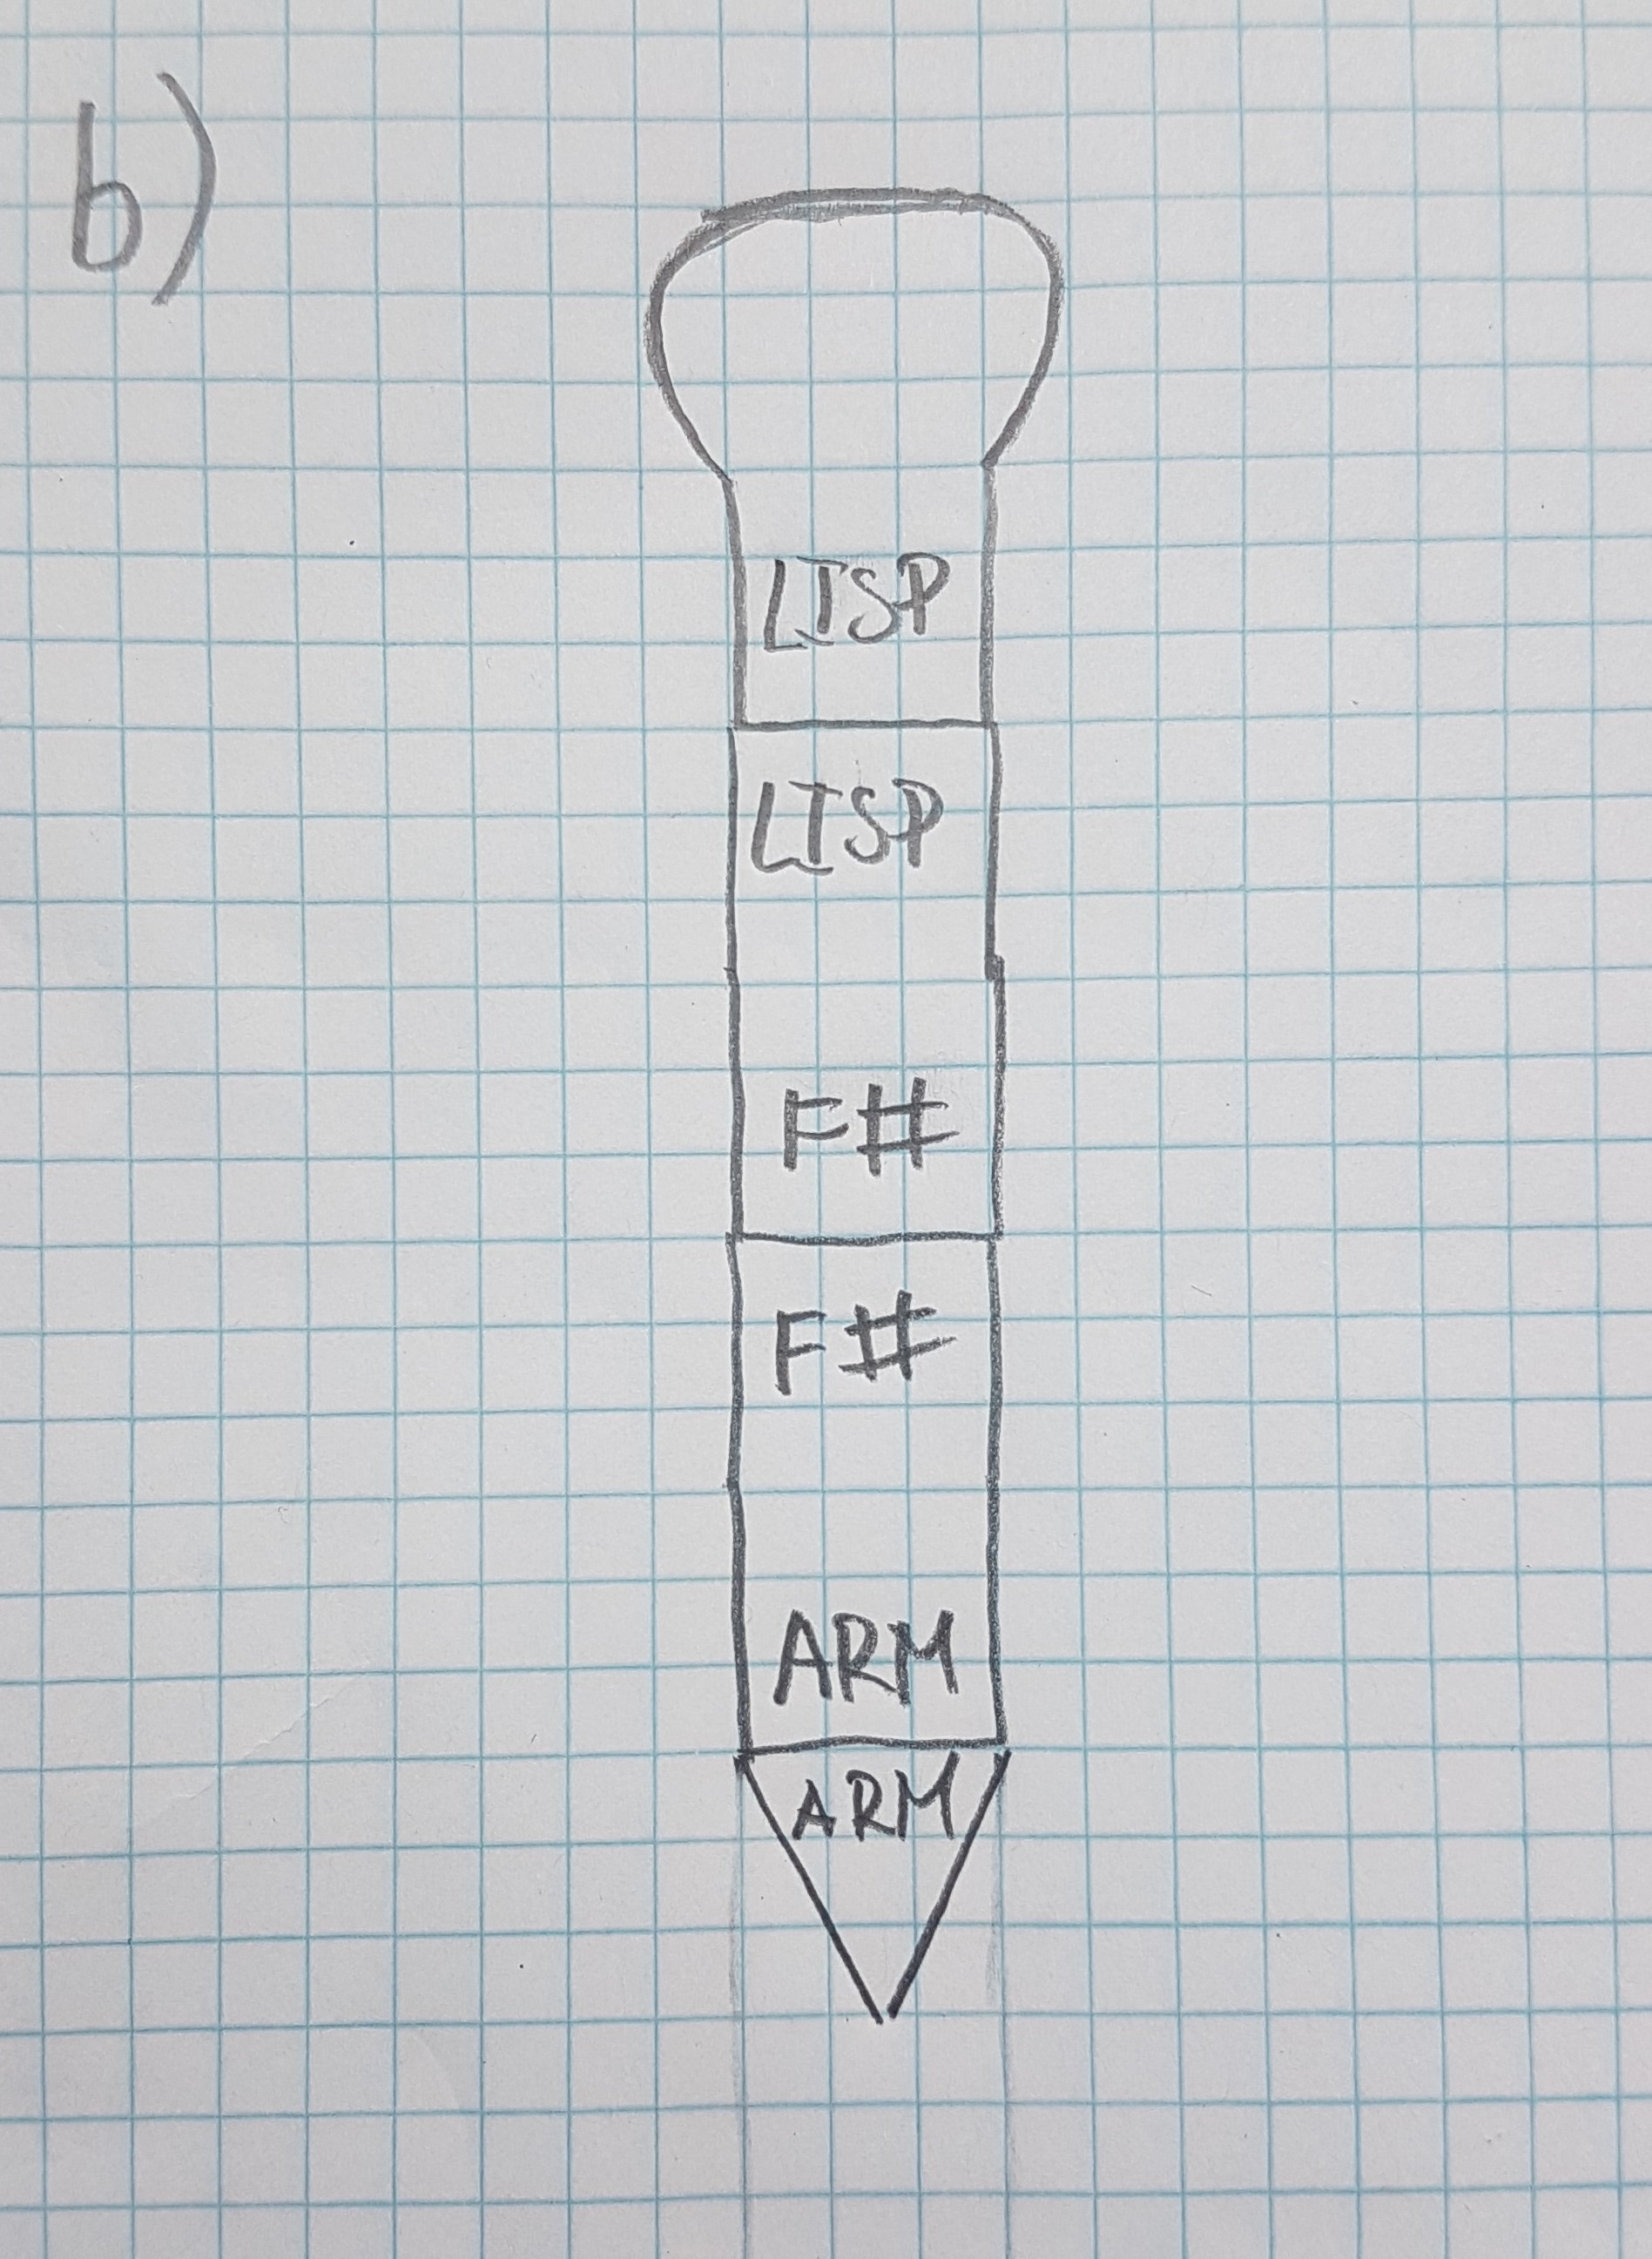 b)
LISP
LISP
F#
F#
ARM
ARM